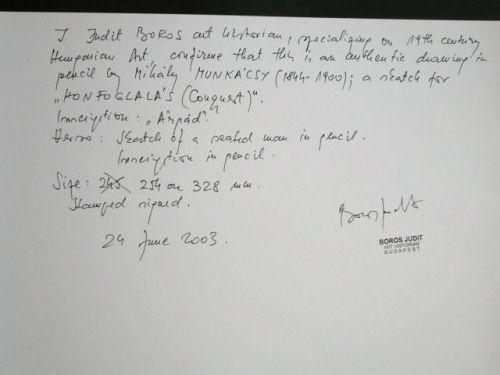 I Judit BOROS art historian, specialising on 19th century
Hungarian Art, confirme that this is an authentic drawing in
pencil by Mihály MUNKÁCSY (1844-1900); a sketch for
„HONFOGLALÁS (Conquest)".
Inscription: „Árpád".
Verso: Sketch of a seated man in pencil.
Inscription in pencil.
Size: 245 254 on 328 mm.
Stamped signed.
24 June 2003.
Boros Judit
BOROS JUDIT
ART HISTORIAN
BUDAPEST